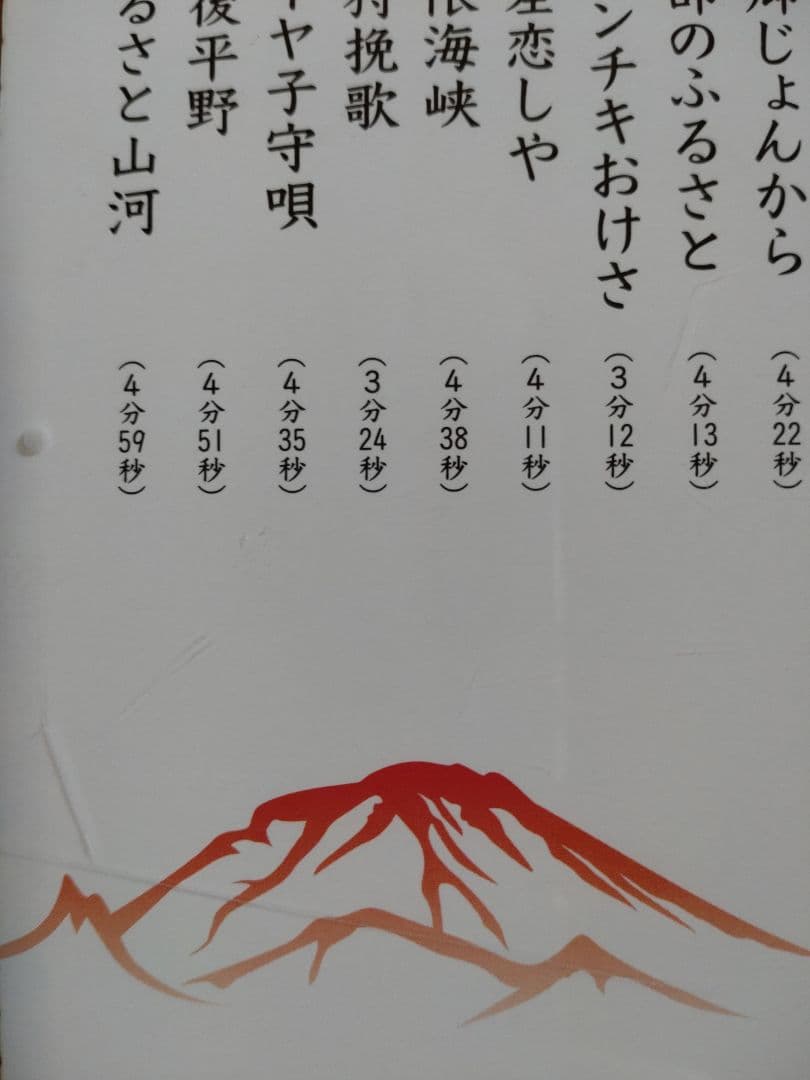 じょんから（4分22秒）
のふるさと（4分13秒）
ンチキおけさ（3分12秒）
恋しや（4分11秒）
海峡（4分38秒）
挽歌（3分24秒）
ヤ子守唄（4分35秒）
後平野（4分51秒）
るさと山河（4分59秒）